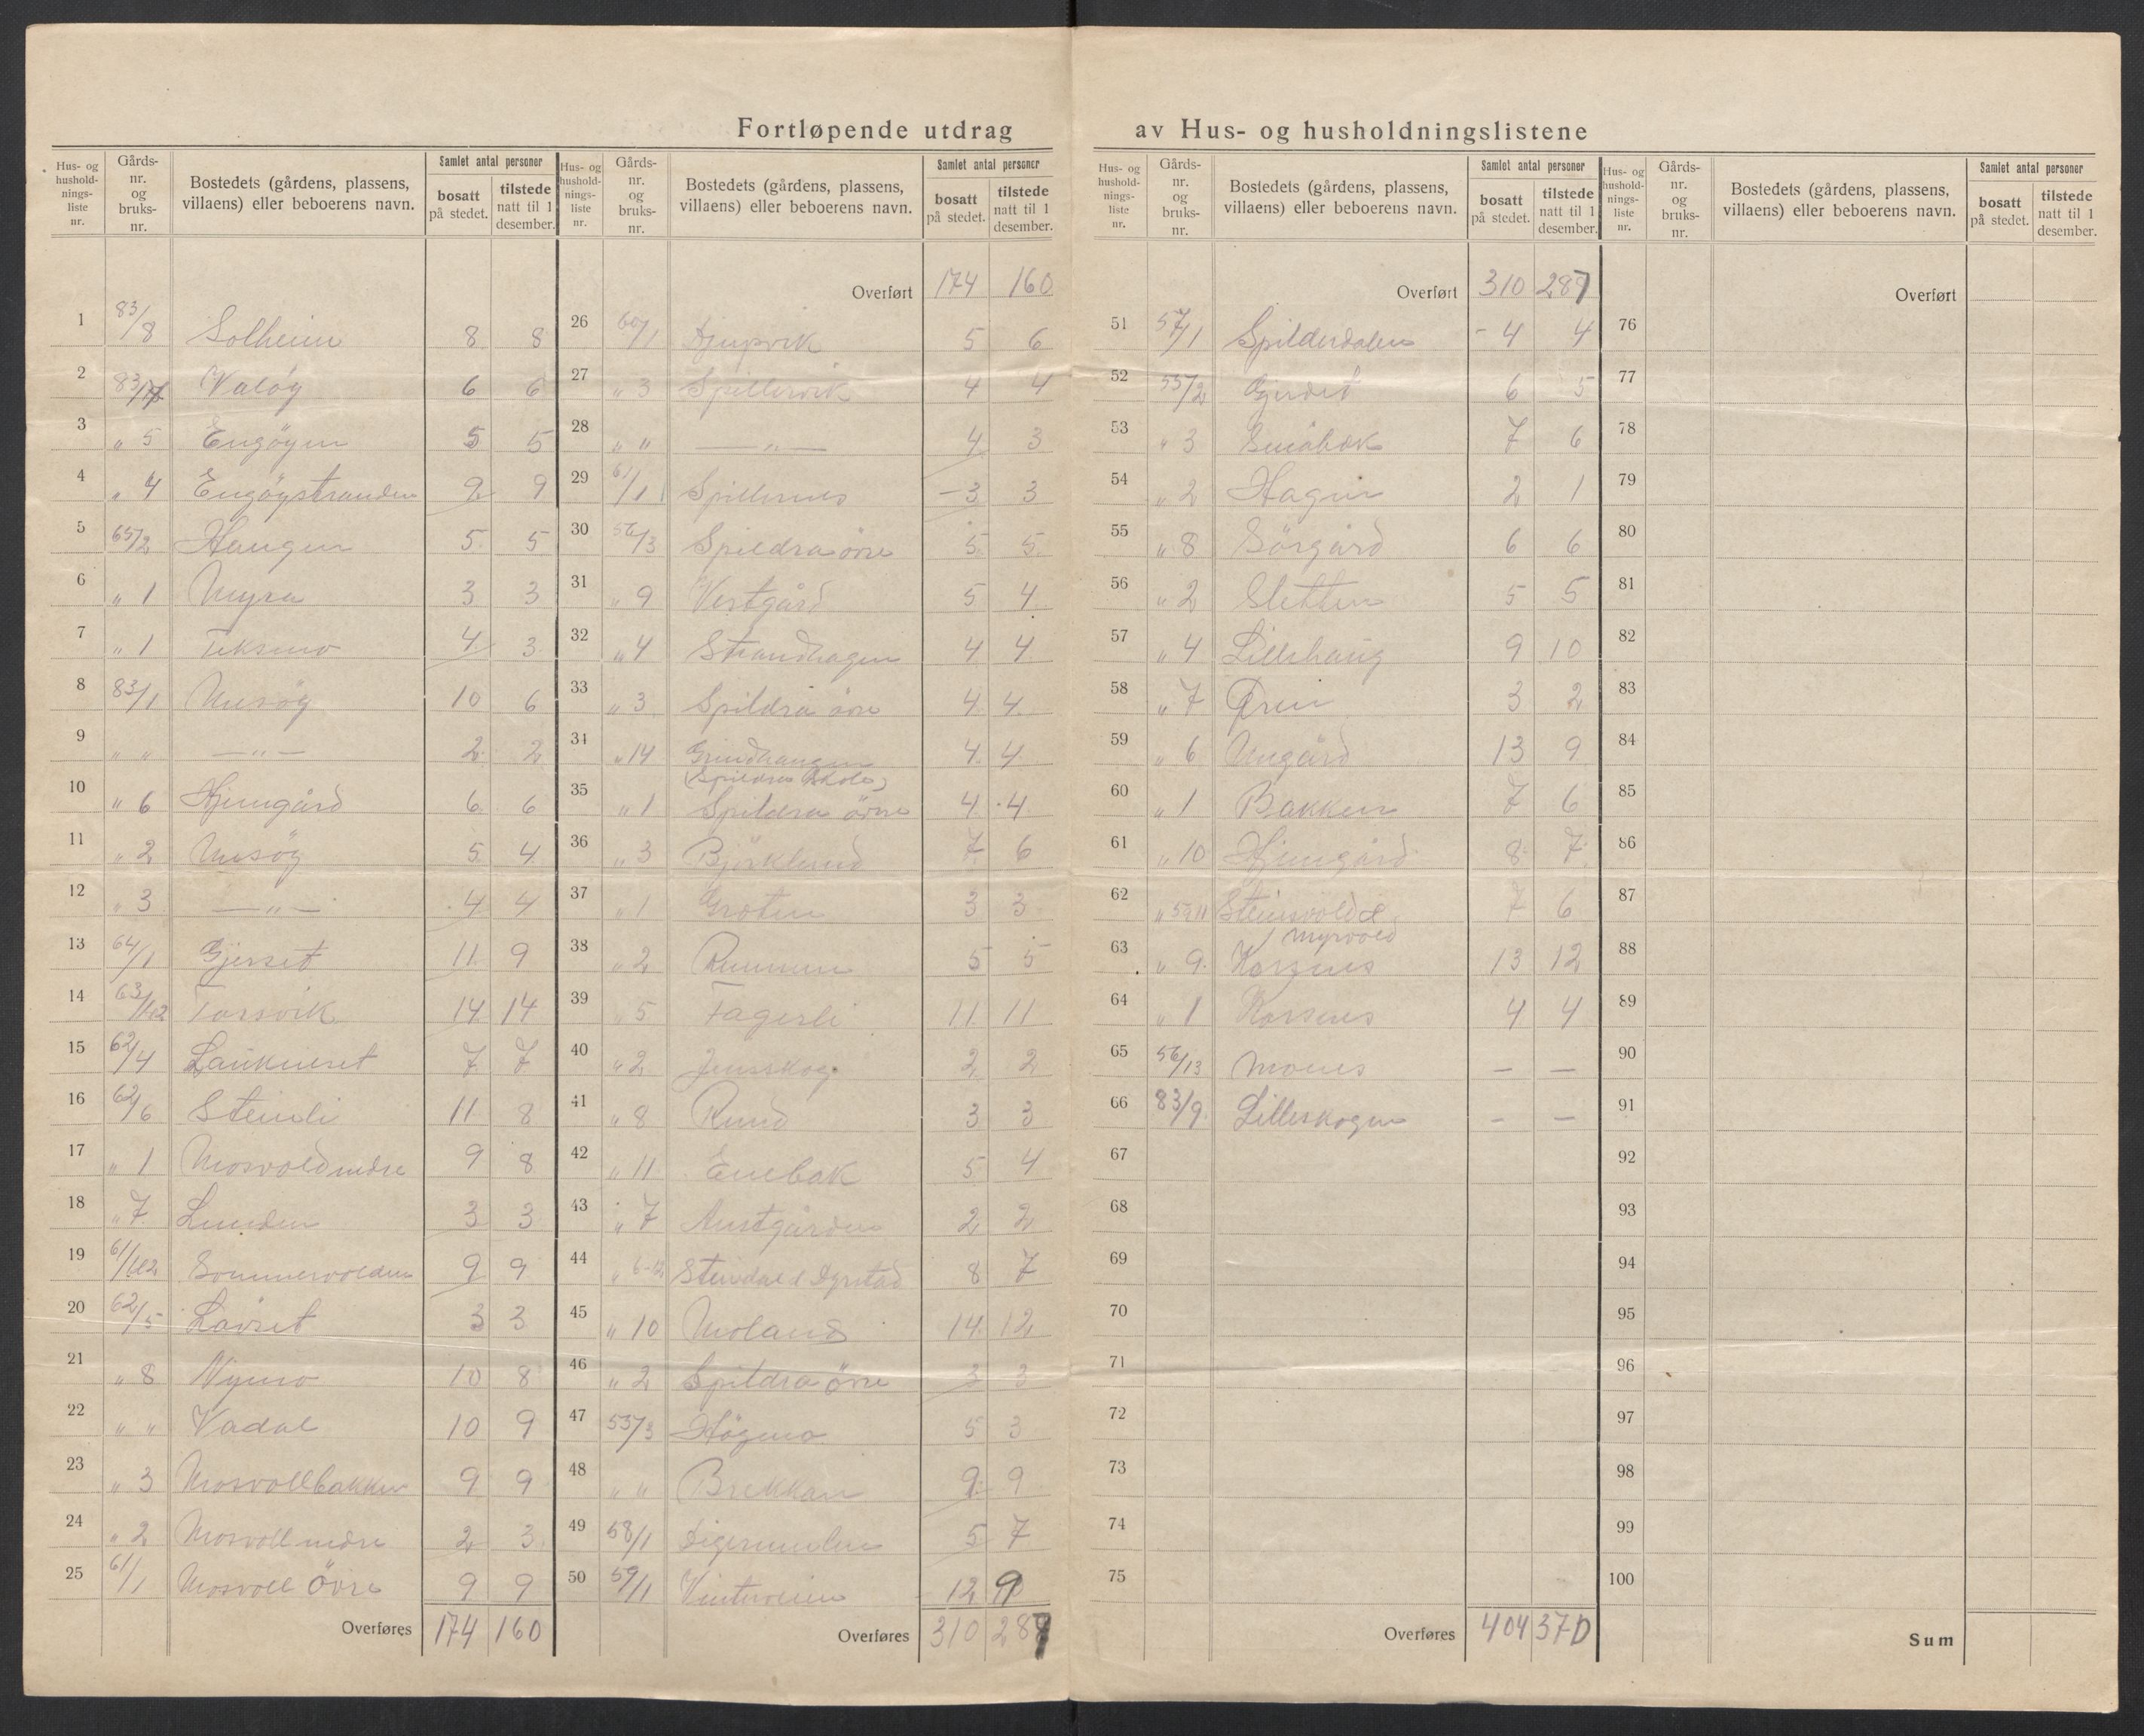 Fortløpende utdrag av Hus- og husholdningslistene
Hus- og husholdnings-liste nr. | Gårds-nr. og bruks-nr. | Bostedets (gårdens, plassens, villaens) eller beboerens navn. | Samlet antal personer | bosatt på stedet. | tilstede natt til 1 desember.
1 83/8 Solheim 8 8
2 Valøy 6 6
3 „ 5 Engöyen 5 5
4 „ 4 Engöystranden 9 9
5 65/2 Haugen 5 5
6 „ 1 Myra 3 3
7 „ 1 Teksmo 4 3
8 83/1 Mesöy 10 6
9 „ „ — „ — 2 2
10 „ 6 Hjemgård 6 6
11 „ 2 Mesöy 5 4
12 „ 3 — „ — 4 4
13 64/1 Gjerset 11 9
14 Torsvik 14 14
15 62/4 Laukneset 7 7
16 62/6 Steinli 11 8
17 „ 1 Mosvold nedre 9 8
18 „ 7 Lunden 3 3
19 Sommervolden 9 9
20 62/5 Lövset 3 3
21 „ 8 Nymo 10 8
22 „ „ Vadal 10 9
23 „ 3 Mosvollbakken 9 9
24 „ 2 Mosvoll nedre 2 3
25 61/1 Mosvoll övre 9 9
Overføres 174 160
Hus- og husholdnings-liste nr. | Gårds-nr. og bruks-nr. | Bostedets (gårdens, plassens, villaens) eller beboerens navn. | Samlet antal personer | bosatt på stedet. | tilstede natt til 1 desember.
Overført 174 160
26 60/1 Djupvik 5 6
27 „ 3 Spillervik 4 4
28 „ „ — „ — 4 3
29 61/1 Spillernes 3 3
30 56/3 Spildra övre 5 5
31 „ 9 Vestgård 5 4
32 „ 4 Strandhagen 4 4
33 „ 3 Spildra övre 4 4
34 „ 14 Grindhaugen 4 4
(Spildra Skole)
35 „ 1 Spildra övre 4 4
36 „ 3 Björklund 7 6
37 „ 1 Groten 3 3
38 „ 2 Remmen 5 5
39 „ 5 Fagerli 11 11
40 „ 2 Jensskog 2 2
41 „ 8 Rund 3 3
42 „ 11 Enebak 5 4
43 „ 7 Austgården 2 2
44 „ 6-12 Steindal & Dyrstad 8 7
45 „ 10 Moland 14 12
46 „ 2 Spildra övre 3 3
47 53/3 Högmo 5 3
48 „ „ Brekkan 9 9
49 58/1 Digermulen 5 7
50 59/1 Vinterveien 12 9
Overføres 310 287
Hus- og husholdnings-liste nr. | Gårds-nr. og bruks-nr. | Bostedets (gårdens, plassens, villaens) eller beboerens navn. | Samlet antal personer | bosatt på stedet. | tilstede natt til 1 desember.
Overført 310 287
51 57/1 Spilderdalen 4 4
52 55/2 Gjerdet 6 5
53 „ 3 Småbak 7 6
54 „ 2 Hagen 2 1
55 „ 8 Sörgård 6 6
56 „ 2 Sletten 5 5
57 „ 4 Lillehaug 9 10
58 „ 7 Øren 3 2
59 „ 6 Megård 13 9
60 „ 1 Bakken 7 6
61 „ 10 Hjemgård 8 7
62 „ 5 & 11 Steinsvold & 7 6
Myrvold
63 „ 9 Korsnes 13 12
64 „ 1 Korsnes 4 4
65 56/13 Mones — —
66 83/9 Lilleskogen — —
67
68
69
70
71
72
73
74
75
Overføres 404 370
Hus- og husholdnings-liste nr. | Gårds-nr. og bruks-nr. | Bostedets (gårdens, plassens, villaens) eller beboerens navn. | Samlet antal personer | bosatt på stedet. | tilstede natt til 1 desember.
Overført
76
77
78
79
80
81
82
83
84
85
86
87
88
89
90
91
92
93
94
95
96
97
98
99
100
Sum